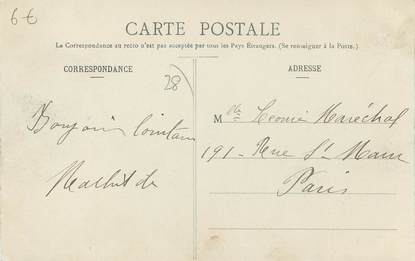 6€
CARTE POSTALE
La Correspondance au recto n'est pas acceptée par tous les Pays Étrangers. (Se renseigner à la Poste.)
CORRESPONDANCE
ADRESSE
28
Bonjour lointain
Mathilde
Mlle Léonie Maréchal
191 - Rue St Maur
Paris